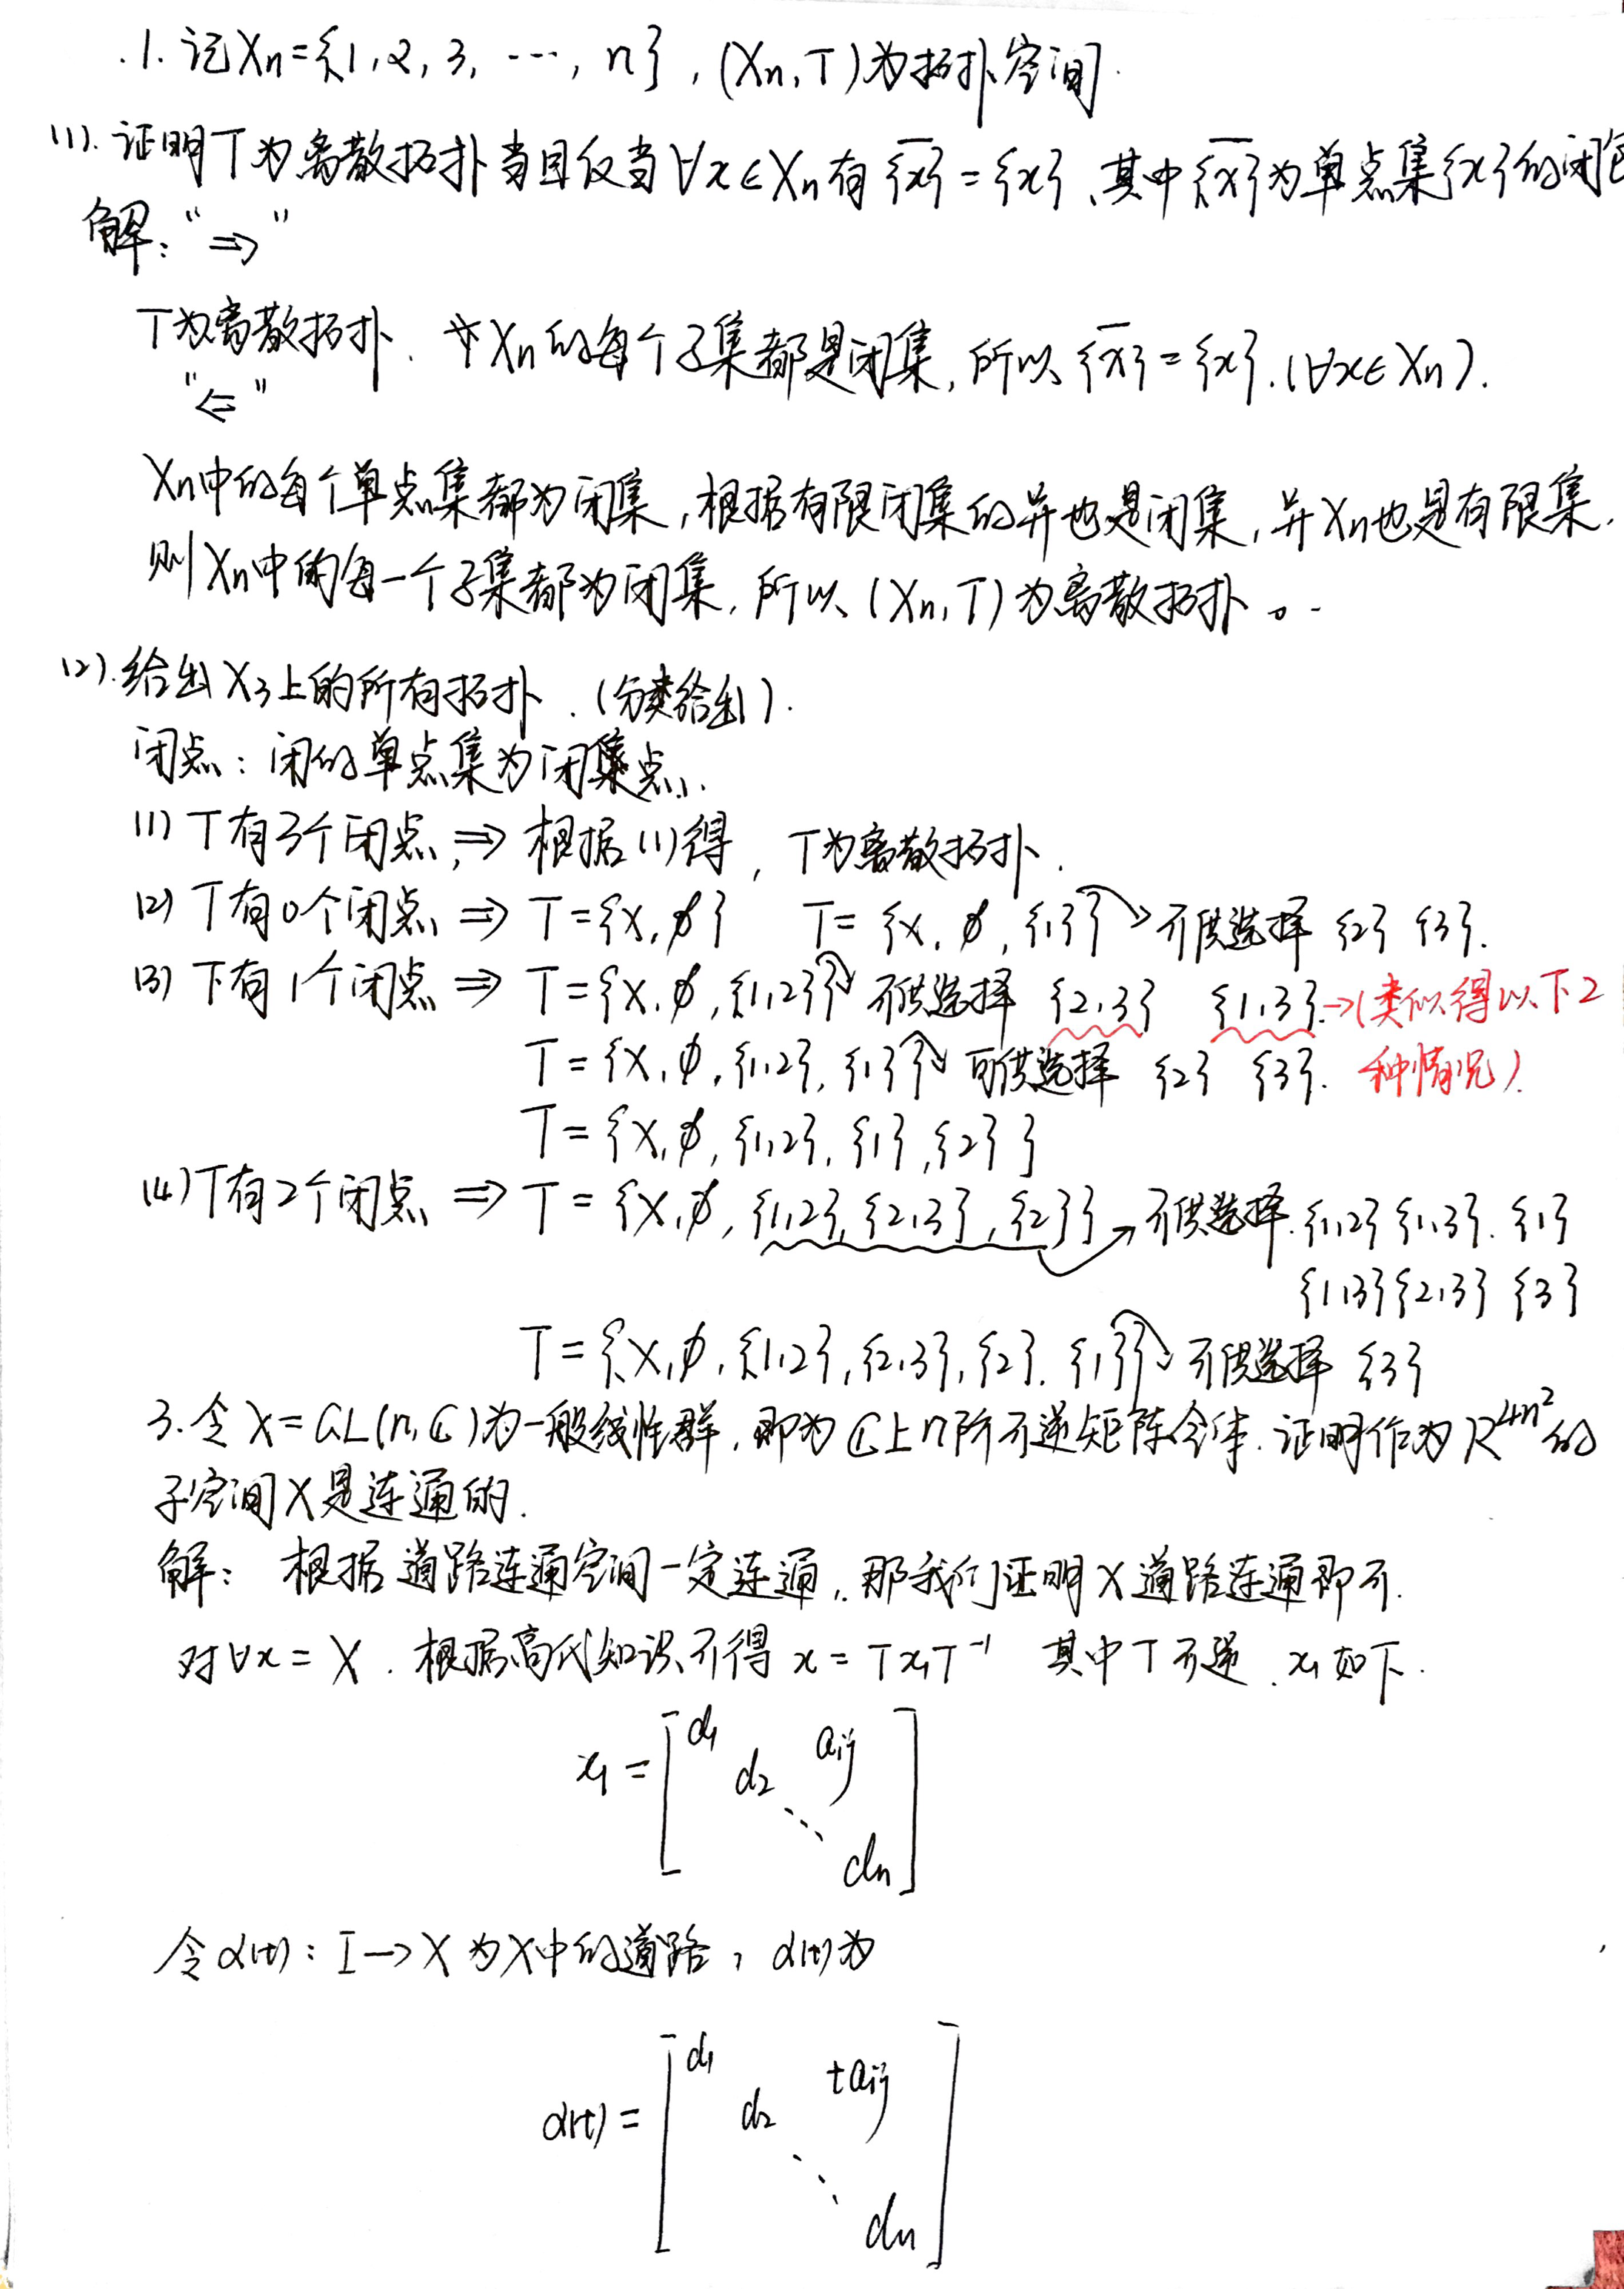 .1. 记Xn={1,2,3,…,n},(Xn,T)为拓扑空间.
(1).证明T为离散拓扑当且仅当∀x∈Xn有{x}̅={x}、其中{x}̅为单点集{x}的闭包
解:"⇒"
T为离散拓扑.Xn的每个子集都是闭集,所以{x}̅={x}.(∀x∈Xn).
"⇐"
Xn中的每个单点集都为闭集,根据有限闭集的并也是闭集,并Xn也是有限集,
则Xn中的每一个子集都为闭集,所以(Xn,T)为离散拓扑。
(2).给出X₃上的所有拓扑.(分类给出).
闭点:闭的单点集为闭集点.
(1) T有3个闭点,⇒ 根据(1)得,T为离散拓扑.
(2) T有0个闭点 ⇒ T={X,∅} T={X,∅,{1}} 可供选择 {2} {3}.
(3) T有1个闭点 ⇒ T={X,∅,{1,2}} 可供选择 {2,3} {1,3}→(类似得以下2
T={X,∅,{1,2},{1}} 可供选择 {2} {3}. 种情况).
T={X,∅,{1,2},{1},{2}}
(4) T有2个闭点 ⇒ T={X,∅,{1,2},{2,3},{2}} 可供选择.{1,2} {1,3}.{1}
{1,3} {2,3} {3}
T={X,∅,{1,2},{2,3},{2},{1}} 可供选择 {3}
3.令X=GL(n,ℂ)为一般线性群,即为ℂ上n阶可逆矩阵全体.证明作为R⁴ⁿ²的
子空间X是连通的.
解: 根据道路连通空间一定连通,那我们证明X道路连通即可.
对∀x=X.根据高代知识可得 x=Tx₁T⁻¹ 其中T可逆.x₁如下.
x₁=[d₁ d₂ aij ⋱ dn]
令α(t):I→X为X中的道路,α(t)为
α(t)=[d₁ d₂ taij ⋱ dn]